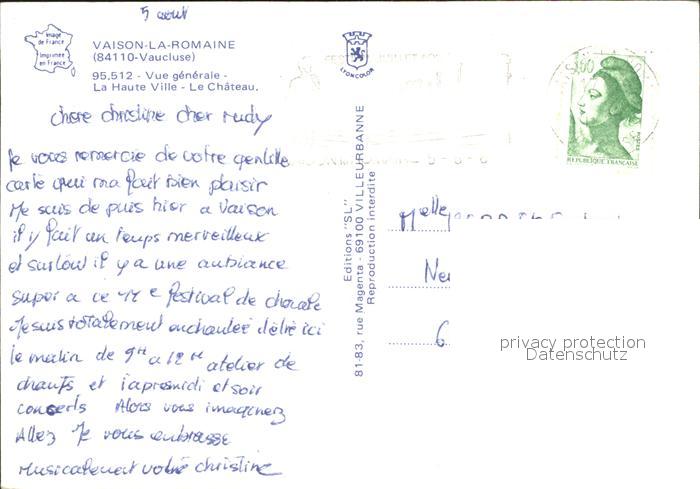 5 aout
Image de France
Imprimée en France
VAISON-LA-ROMAINE
(84110-Vaucluse)
95.512 - Vue générale -
La Haute Ville - Le Château.
LYONCOLOR
chere christine cher rudy
Je vous remercie de votre gentille
carte qui ma fait bien plaisir
Je suis de puis hier a Vaison
il y fait un temps merveilleux
et surtout il y a une ambiance
super a ce 11e festival de chorale
Je suis totalement enchantée d'être ici
le matin de 9H a 12H atelier de
chants et l'apremidi et soir
concerts Alors vous imaginez
Allez Je vous embrasse
Musicalement votre christine
Editions "SL"
81-83, rue Magenta - 69100 VILLEURBANNE
Reproduction interdite
REPUBLIQUE FRANÇAISE
Melle
Ne
6
privacy protection
Datenschutz